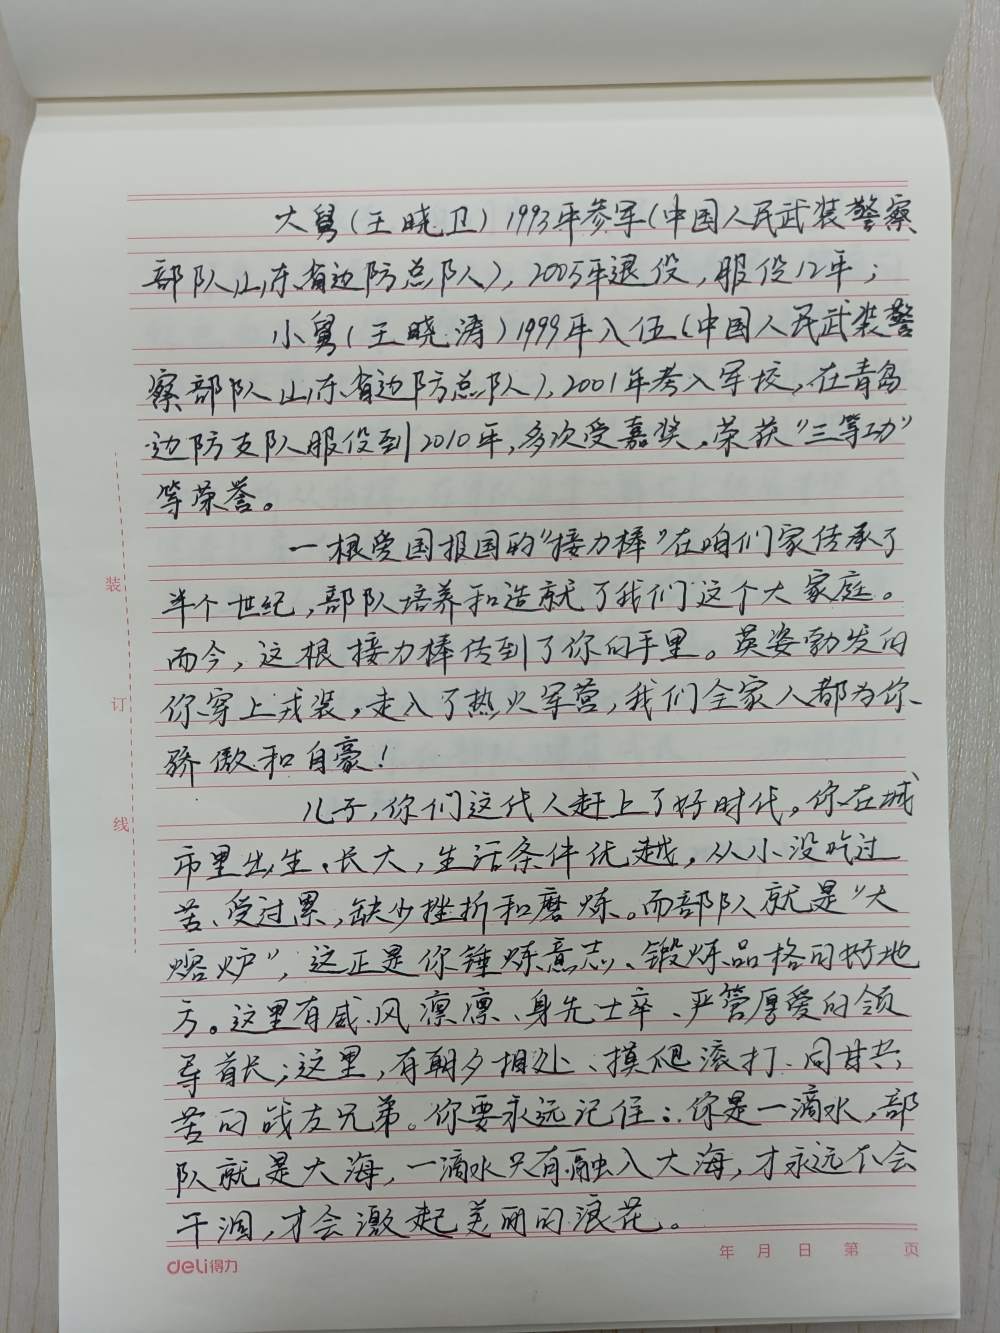 大舅（王晓卫）1993年参军（中国人民武装警察
部队山东省边防总队），2005年退役，服役12年；
小舅（王晓涛）1999年入伍（中国人民武装警
察部队山东省边防总队），2001年考入军校，在青岛
边防支队服役到2010年，多次受嘉奖，荣获“三等功”
等荣誉。
一根爱国报国的“接力棒”在咱们家传承了
半个世纪，部队培养和造就了我们这个大家庭。
而今，这根接力棒传到了你的手里。英姿勃发的
你穿上戎装，走入了热火军营，我们全家人都为你
骄傲和自豪！
儿子，你们这代人赶上了好时代。你在城
市里出生、长大，生活条件优越，从小没吃过
苦、受过累，缺少挫折和磨炼。而部队就是“大
熔炉”，这正是你锤炼意志、锻炼品格的好地
方。这里有威风凛凛、身先士卒、严管厚爱的领
导首长；这里，有朝夕相处、摸爬滚打、同甘共
苦的战友兄弟。你要永远记住：你是一滴水，部
队就是大海，一滴水只有融入大海，才永远不会
干涸，才会激起美丽的浪花。
装
订
线
deli得力
年 月 日 第 页